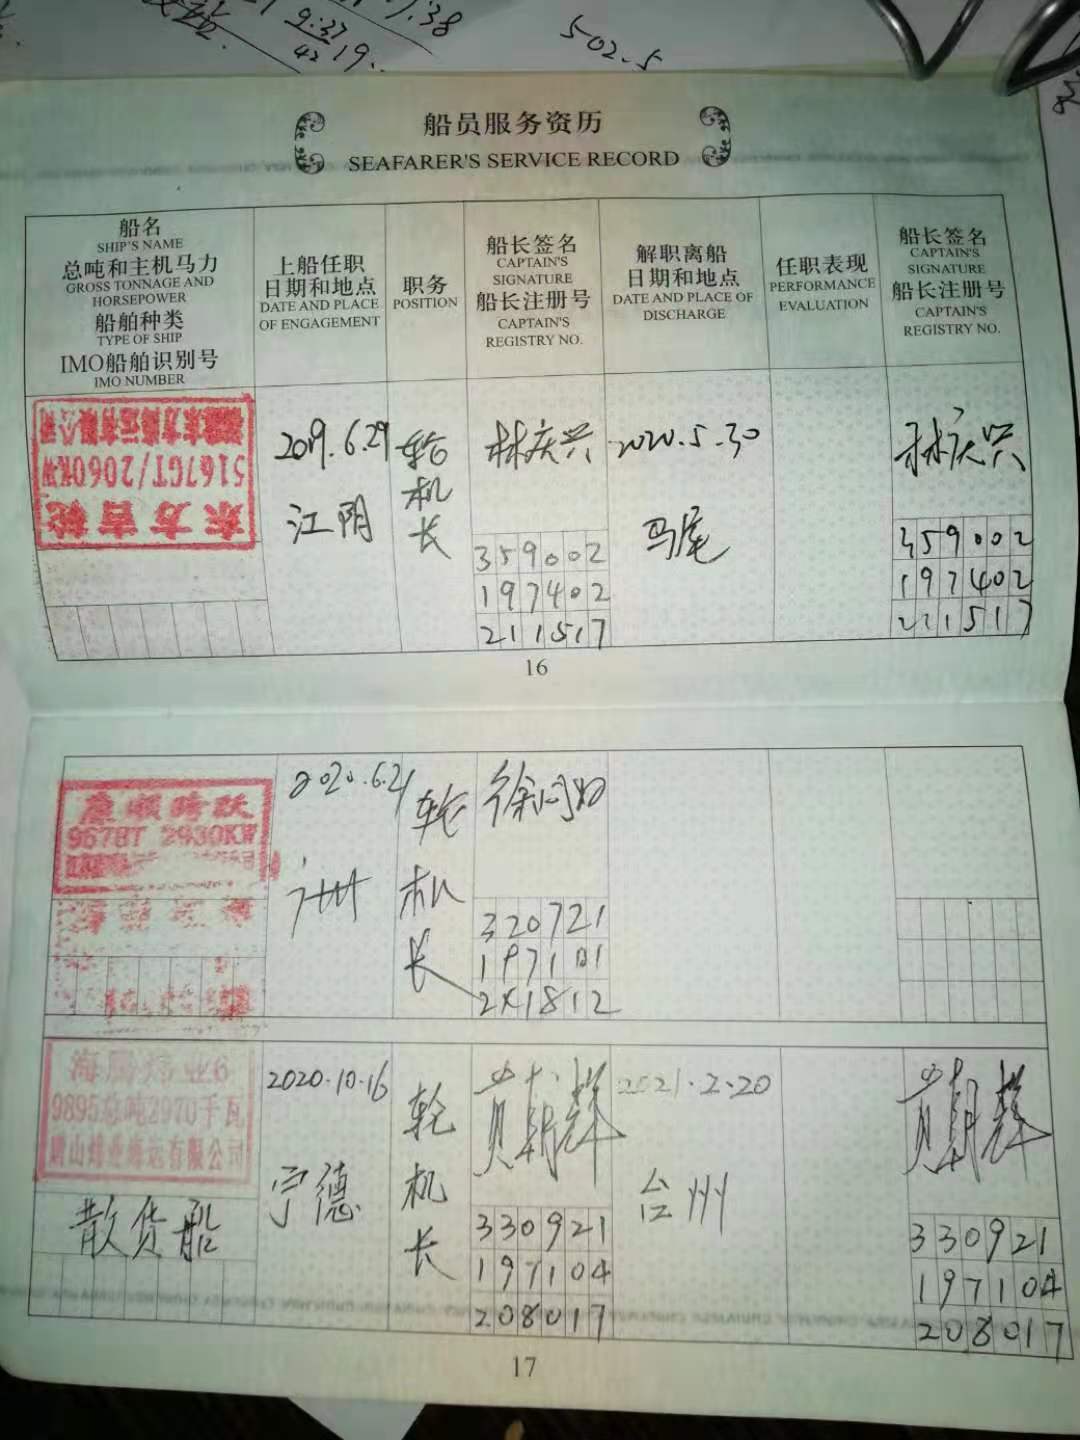 9:37
42 19..
:38
502.5
船员服务资历
SEAFARER'S SERVICE RECORD
船名
SHIP'S NAME
总吨和主机马力
GROSS TONNAGE AND
HORSEPOWER
船舶种类
TYPE OF SHIP
IMO船舶识别号
IMO NUMBER
上船任职
日期和地点
DATE AND PLACE
OF ENGAGEMENT
职务
POSITION
船长签名
CAPTAIN'S
SIGNATURE
船长注册号
CAPTAIN'S
REGISTRY NO.
解职离船
日期和地点
DATE AND PLACE OF
DISCHARGE
任职表现
PERFORMANCE
EVALUATION
船长签名
CAPTAIN'S
SIGNATURE
船长注册号
CAPTAIN'S
REGISTRY NO.
东方吉轮
5167GT/2060KW
东方海运有限公司
2019.6.29
江阴
轮
机
长
林庆兴
359002
197402
211517
2020.5.30
马尾
林庆兴
359002
197402
211517
16
9678T 2930KW
2020.6.21
广州
轮
机
长
320721
197101
2X1812
9895总吨2970千瓦
海运有限公司
散货船
2020.10.16
宁德
轮
机
长
黄朝群
330921
197104
208017
2021.2.20
台州
黄朝群
330921
197104
208017
17